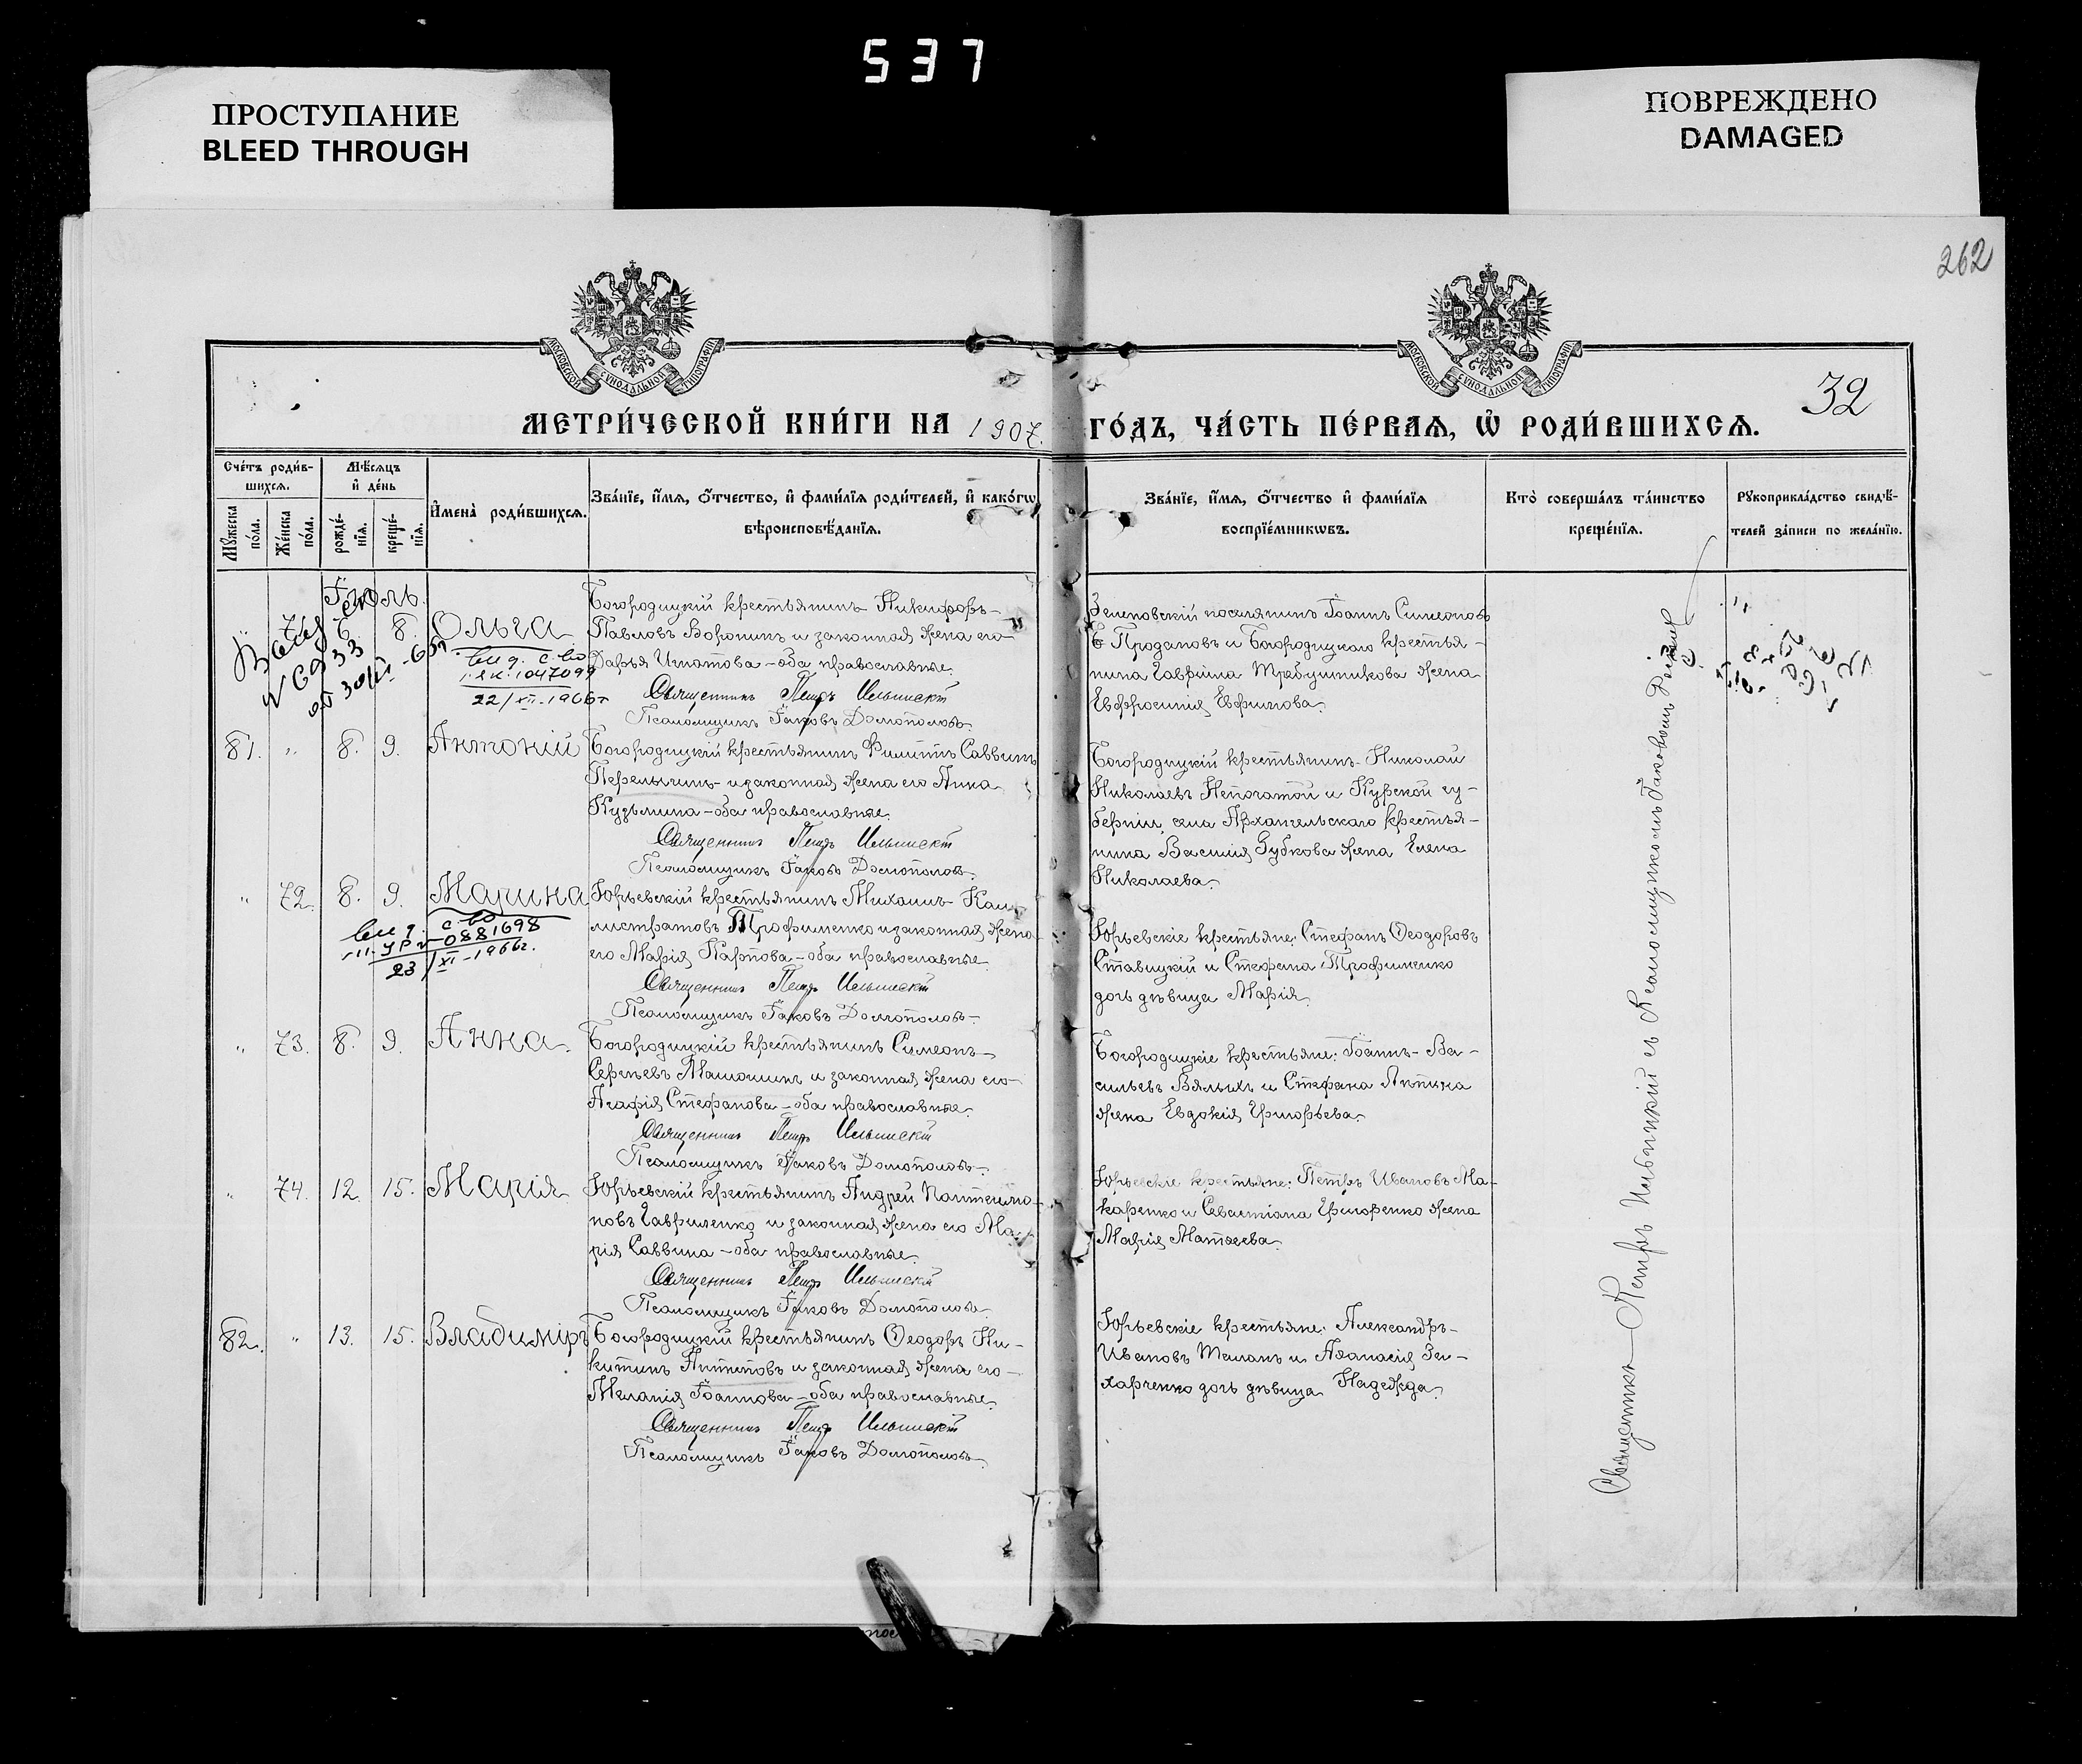 537
ПРОСТУПАНИЕ
BLEED THROUGH
ПОВРЕЖДЕНО
DAMAGED
262
МОСКОВСКОЙ СУНОДАЛЬНОЙ ТИПОГРАФІИ
МОСКОВСКОЙ СУНОДАЛЬНОЙ ТИПОГРАФІИ
32
МЕТРИ́ЧЕСКОЙ КНИ́ГИ НА 1907. ГО́ДЪ, ЧА́СТЬ ПЕ́РВАЯ, Ѡ҆ РОДИ́ВШИХСѦ.
Сче́тъ роди́в-
шихсѧ.
Мѣ́сѧцъ
и҆ де́нь
Мꙋ́жеска по́ла.
Же́нска по́ла.
рожде́-нїѧ.
креще́-нїѧ.
И҆мена̀ роди́вшихсѧ.
Зва́нїе, и҆́мѧ, ѻ҆́тчество, и҆ фами́лїѧ роди́телей, и҆ како́гѡ
вѣроисповѣ́данїѧ.
Зва́нїе, и҆́мѧ, ѻ҆́тчество и҆ фами́лїѧ
воспрїе́мникѡвъ.
Кто̀ соверша́лъ та́инство
креще́нїѧ.
Рꙋкоприкла́дство свидѣ́-
телей за́писи по жела́нїю.
Іюль.
8. Ольга
Богородицкій крестьянинъ Никифоръ
Павловъ Воронинъ и законная жена его
Дарья Игнатова - оба православные.
Священникъ Петръ Ильинскій
Псаломщикъ Іаковъ Домополовъ.
№ 6933
1047099
22/XII-1966г
Іоаннъ Симеоновъ
Продановъ и Богородицкаго крестья-
нина Гавріила Требушникова жена
Евфросинія
81. " 8. 9. Антоній
Богородицкій крестьянинъ Филиппъ Саввинъ
и законная жена его Анна
Кузьмина - оба православные.
Священникъ Петръ Ильинскій
Псаломщикъ Іаковъ Домополовъ.
Богородицкій крестьянинъ Николай
Николаевъ Непочатой и Курской гу-
берніи, села Архангельскаго крестья-
нина Василія Губкова жена Елена
Николаева.
" 72. 8. 9. Марина
Юрьевскій крестьянинъ Михаилъ Кал-
листратовъ Трофименко и законная жена
его Марія Карпова - оба православные.
Священникъ Петръ Ильинскій
Псаломщикъ Іаковъ Домополовъ.
0881698
23/XI-1966г.
Юрьевскіе крестьяне: Стефанъ Ѳеодоровъ
Ставицкій и Стефана Трофименко
дочь дѣвица Марія.
" 73. 8. 9. Анна.
Богородицкій крестьянинъ Симеонъ
Сергѣевъ и законная жена его
Агафія Стефанова - оба православные.
Священникъ Петръ Ильинскій
Псаломщикъ Іаковъ Домополовъ.
Богородицкіе крестьяне: Іоаннъ Ва-
сильевъ Вялыхъ и Стефана
жена Евдокія Григорьева.
" 74. 12. 15. Марія
Юрьевскій крестьянинъ Андрей Пантелимо-
новъ Гавриленко и законная жена его Ма-
рія Саввина - оба православные.
Священникъ Петръ Ильинскій
Псаломщикъ Іаковъ Домополовъ.
Юрьевскіе крестьяне: Петръ Ивановъ Ма-
каренко и Севастіана Григоренко жена
Марія Матѳеева.
82. " 13. 15. Владиміръ
Богородицкій крестьянинъ Ѳеодоръ Ни-
китинъ и законная жена его
Меланія Іоаннова - оба православные.
Священникъ Петръ Ильинскій
Псаломщикъ Іаковъ Домополовъ.
Юрьевскіе крестьяне: Александръ
Ивановъ и Аѳанасія За-
харченко дочь дѣвица Надежда.
Священникъ Петръ Ильинскій съ Псаломщикомъ Іаковомъ